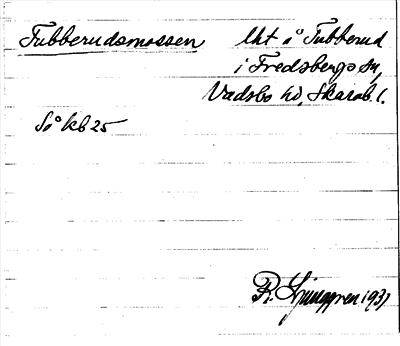 Tubberudsmossen
lht å Tubberud
i Fredsbergs sn,
Vadsbo hd, Skarab. l.
So° kb 25
R. Ljunggren 1937